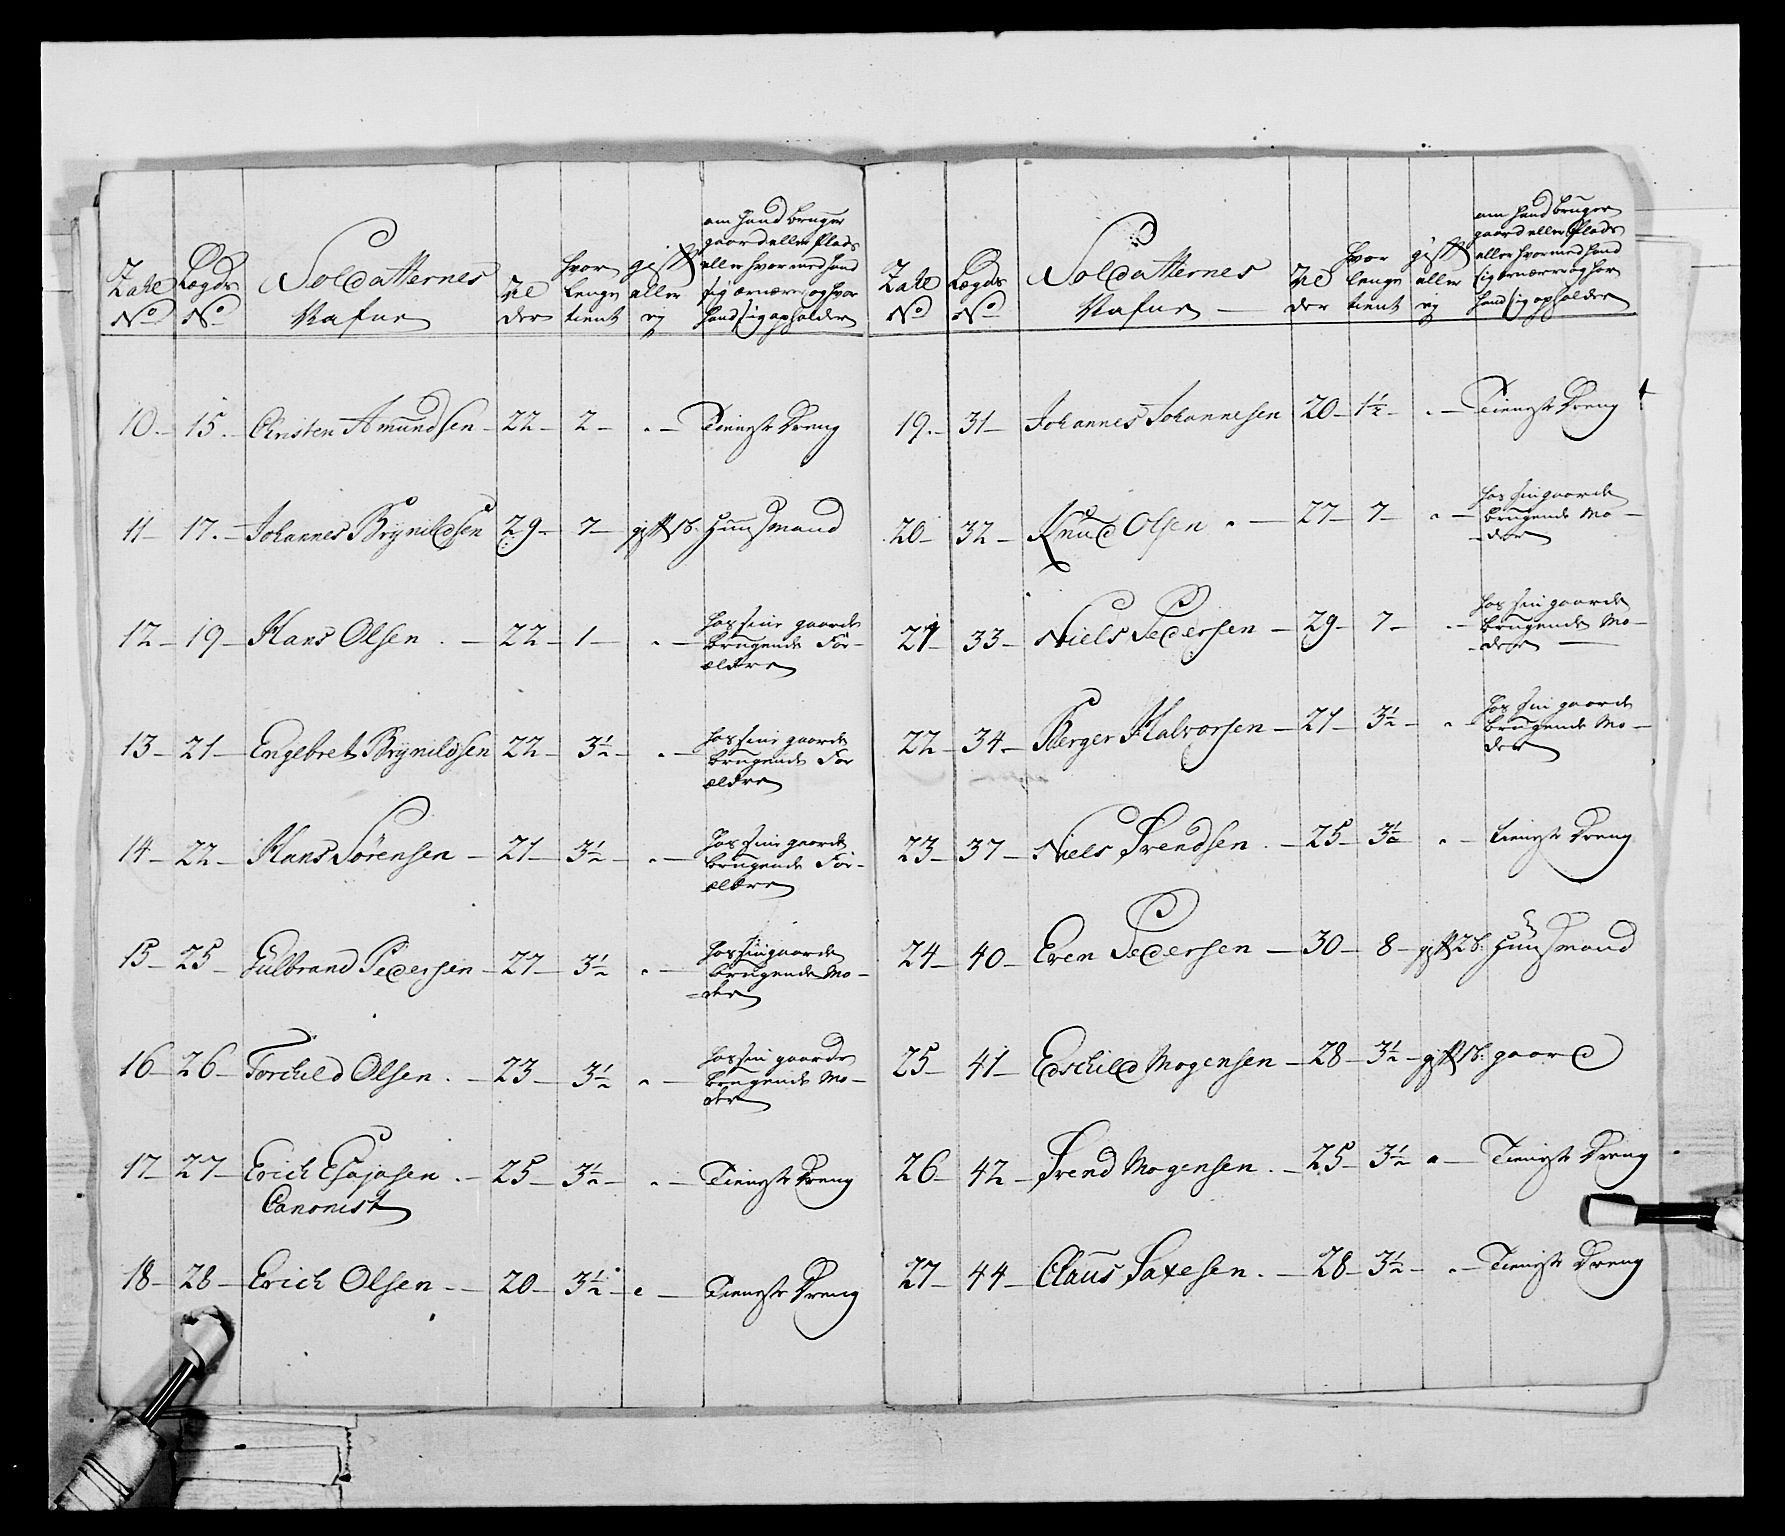 Zahl No
Lægds No
Soldatternes Nafne
Alder
hvor lenge tient
gift eller ey
om hand bruger gaard eller Plads eller hvormed hand sig ernærer og hvor hand sig opholder
10 - 15 - Christen Amundsen - 22 - 2 - " - Tieneste Dreng
11 - 17 - Johannes Brynildsen 29 - 7 - gift 1 b: Huusmand
12 - 19 - Hans Olsen . - 22 - 1 - " - hos sine gaard brugende For-ældre
13 - 21 - Engebret Brynildsen 22 - 3½ - " - hos sine gaard brugende For ældre
14 - 22 - Hans Sörensen - 21 - 3½ - " - hos sine gaard brugende For-ældre
15 - 25 - Gulbrand Pedersen - 27 - 3½ " - hos sin gaard brugende Mo-der
16 - 26 - Torchild Olsen . - 23 - 3½ " - hos sin gaard brugende Mo-der
17 - 27 - Erich Esajasen . - 25 - 3½ - " - Tieneste Dreng
Canonist
18 - 28 - Erich Olsen - - 20 - 3½ - " - Tieneste Dreng
Zahl No
Lægds No
Soldatternes Nafne -
Alder
hvor lenge tient
gift eller ey
om hand bruger gaard eller Plads eller hvormed hand sig ernærer og hvor hand sig opholder
19. - 31 - Johannes Johannesen 20 - 1½ - " - Tieneste Dreng
20 - 32 - Knud Olsen . - 27 - 7 - " - hos sin gaard brugende Mo-der
21 - 33 - Niels Pedersen - 29 - 7 - " - hos sin gaard brugende Mo-der
22 - 34 - Berger Halvorsen - 21 - 3½ - " - hos sin gaard brugende Mo-der
23 - 37 - Niels Svendsen . - 25 - 3½ " - tieneste Dreng
24 - 40 - Even Pedersen - 30 - 8 - gift 2 b: Huusmand
25 - 41 - Edschild Mogensen - 28 - 3½ - gift 1 b: gaard
26 - 42 - Svend Mogensen . - 25 - 3½ " - Tieneste Dreng
27 - 44 - Claus Saxesen . - 28 - 3½ - " - Tieneste Dreng